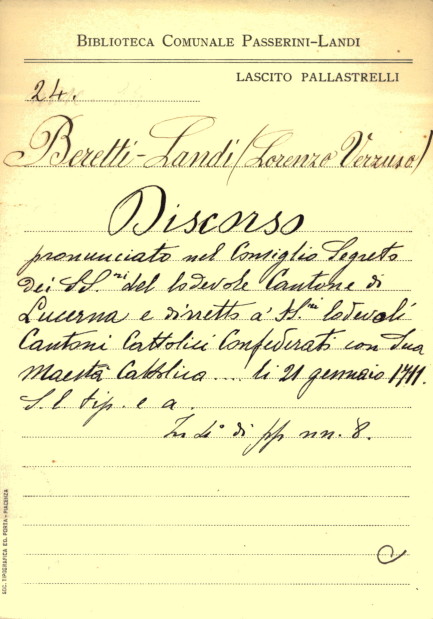 BIBLIOTECA COMUNALE PASSERINI-LANDI
LASCITO PALLASTRELLI
24.
Beretti-Landi (Lorenzo Verzuso)
Discorso
pronunciato nel Consiglio Segreto
dei SS.ri del lodevole Cantone di
Lucerna e diretto a' SS.ri lodevoli
Cantoni Cattolici Confederati con Sua
Maestà Cattolica... li 21 gennaio 1711.
S. l. tip. e a.
In 4° di pp nn. 8.
SOC. TIPOGRAFICA ED. PORTA - PIACENZA